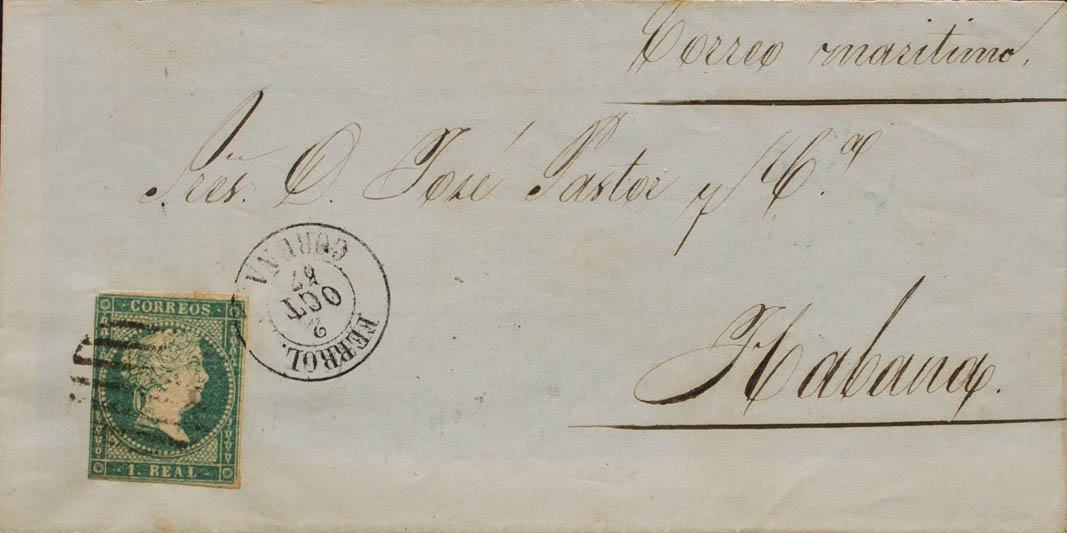 Correo maritimo.
Sres. D. José Pastor y Cª
Habana.
FERROL.
2
OCT
57
CORUNA
CORREOS
1. REAL